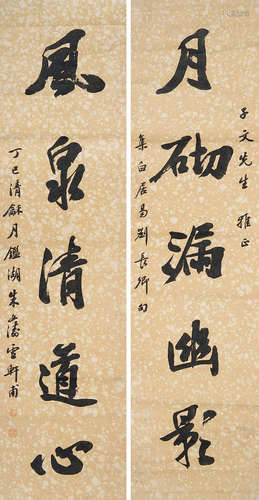 子文先生 雅正
月砌漏幽影
集白居易劉長卿句
風泉清道心
丁巳清龢月鑑湖朱濤雲軒甫